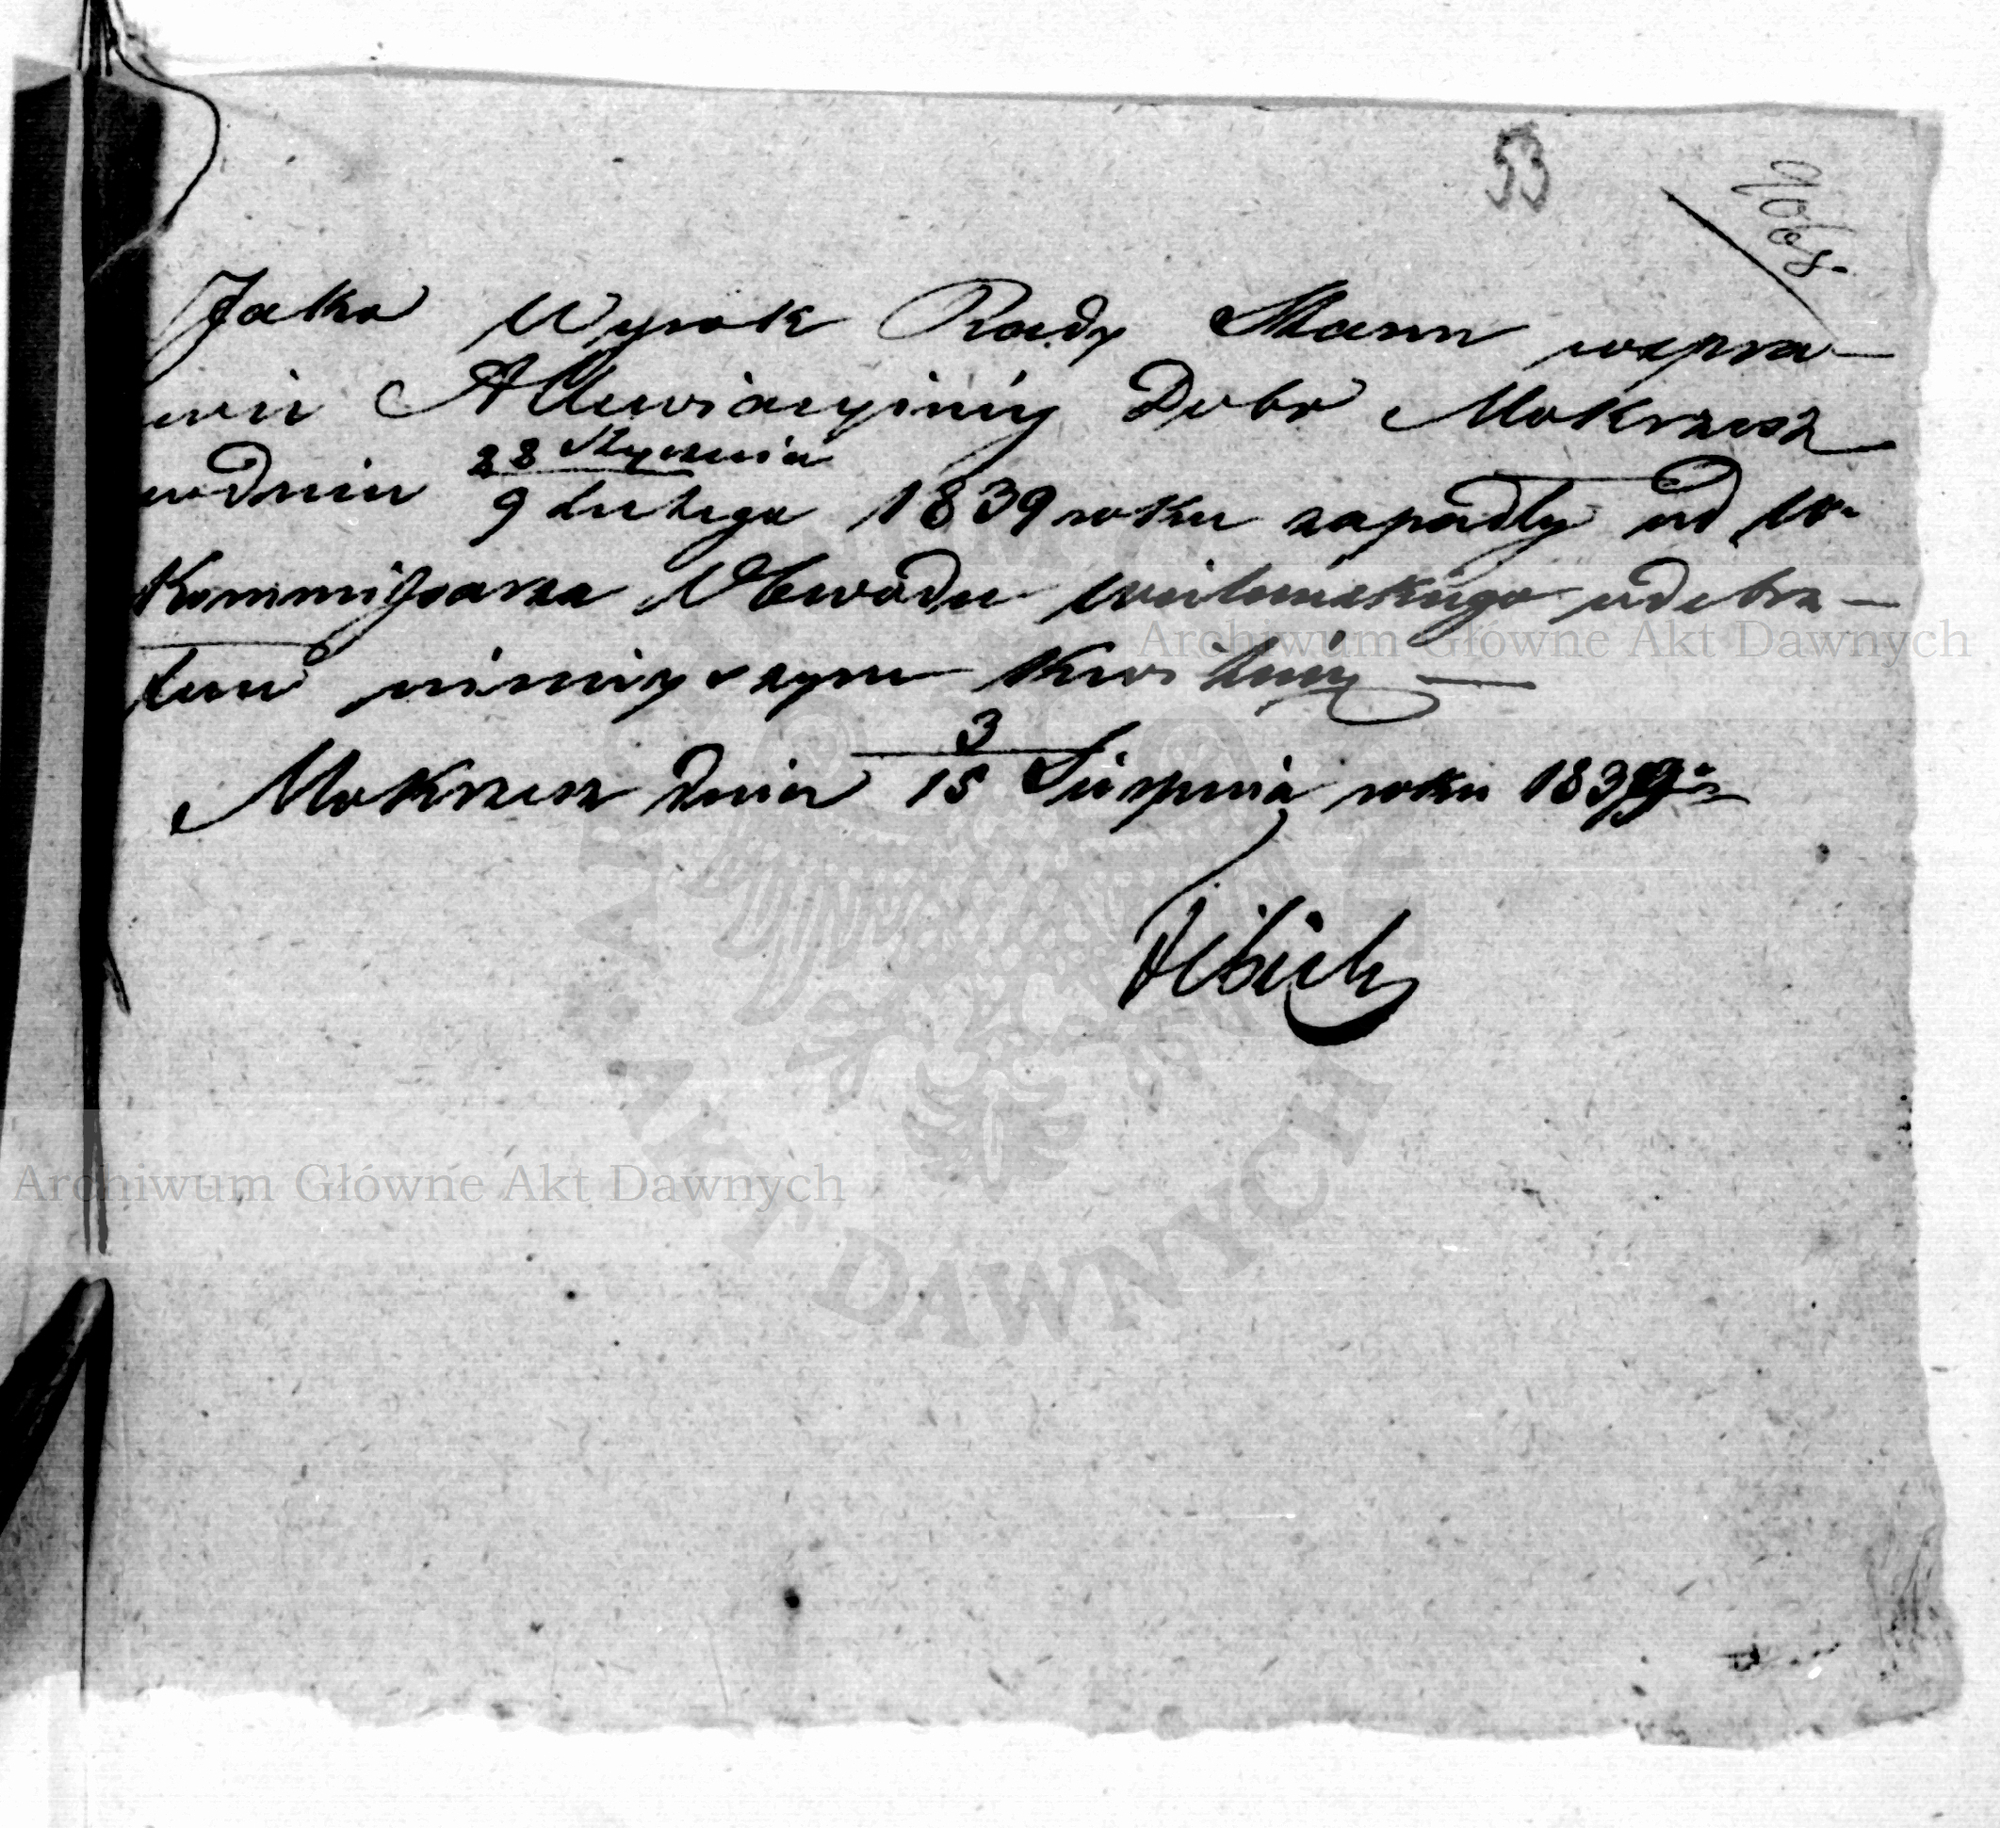 53
9068.
Jako Wyrok Rady Stanu wspra–
wie Allewiacyiney Dobr Mokrzesz
wdniu 28 Stycznia
9 Lutego 1839 roku zapadły od W.
Kommissarza Obwodu Wieluńskiego odebra–
łem ninieyszym Kwituię —
Mokrzesz dnia 3
15 Sierpnia roku 1839 go
Archiwum Główne Akt Dawnych
Archiwum Główne Akt Dawnych
AKT DAWNYCH